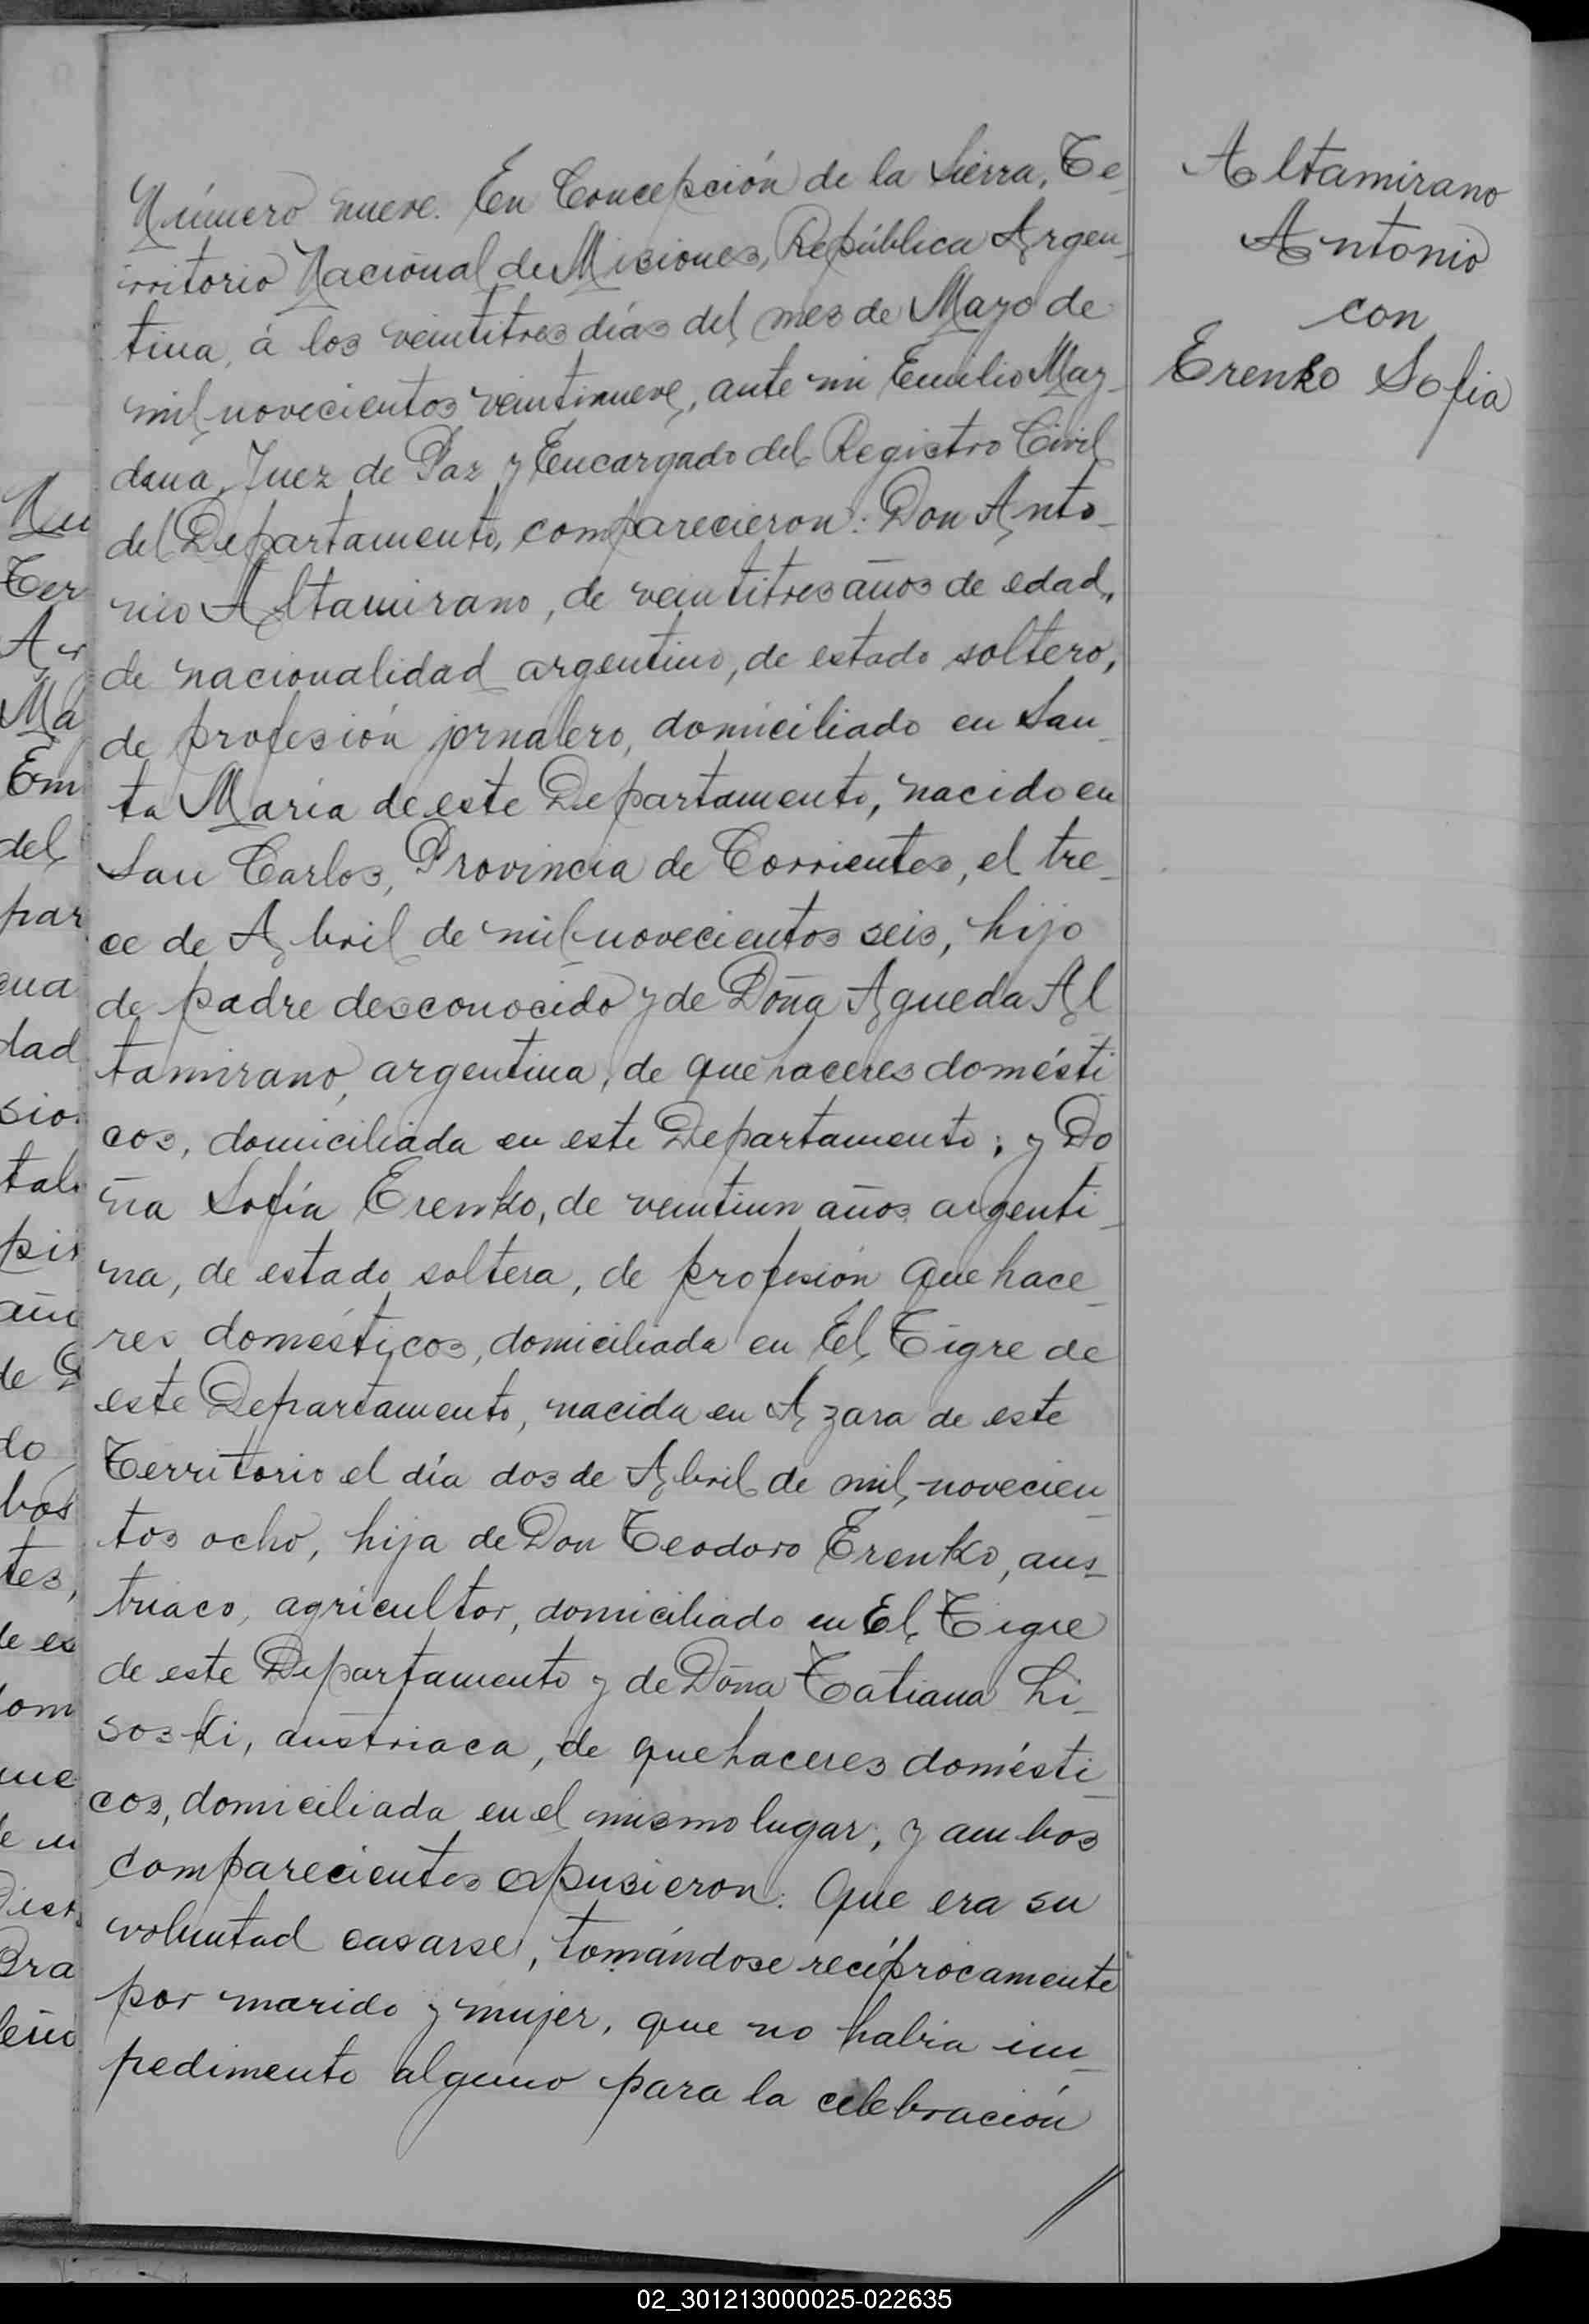 Número nueve. En Concepción de la Sierra, Te-
rritorio Nacional de Misiones, República Argen-
tina, á los veintitres días del mes de Mayo de
mil novecientos veintinueve, ante mi Emilio May-
dana, Juez de Paz y Encargado del Registro Civil
del Departamento, comparecieron: Don Anto-
nio Altamirano, de veintitres años de edad,
de nacionalidad argentino, de estado soltero,
de profesión jornalero, domiciliado en San-
ta María de este Departamento, nacido en
San Carlos, Provincia de Corrientes, el tre-
ce de Abril de mil novecientos seis, hijo
de padre desconocido y de Doña Agueda Al
tamirano, argentina, de quehaceres domésti
cos, domiciliada en este Departamento; y Do
ña Sofía Erenko, de veintiun años argenti-
na, de estado soltera, de profesión quehace-
res domésticos, domiciliada en El Tigre de
este Departamento, nacida en Azara de este
Territorio el día dos de Abril de mil novecien-
tos ocho, hija de Don Teodoro Erenko, aus-
triaco, agricultor, domiciliado en El Tigre
de este Departamento y de Doña Tatiana Li-
soski, austriaca, de quehaceres domésti-
cos, domiciliada en el mismo lugar; y ambos
comparecientes expusieron: Que era su
voluntad casarse, tomándose recíprocamente
por marido y mujer, que no habia im-
pedimento alguno para la celebración
//
Altamirano
Antonio
con
Erenko Sofia
Nu
Ter
Ar
Ma
Em
del
par
ana
dad
sio
tali
pir
añ
de D
do
bos
tes,
de es
dom
ue
de
Dist
Bra
leño
02_301213000025-022635